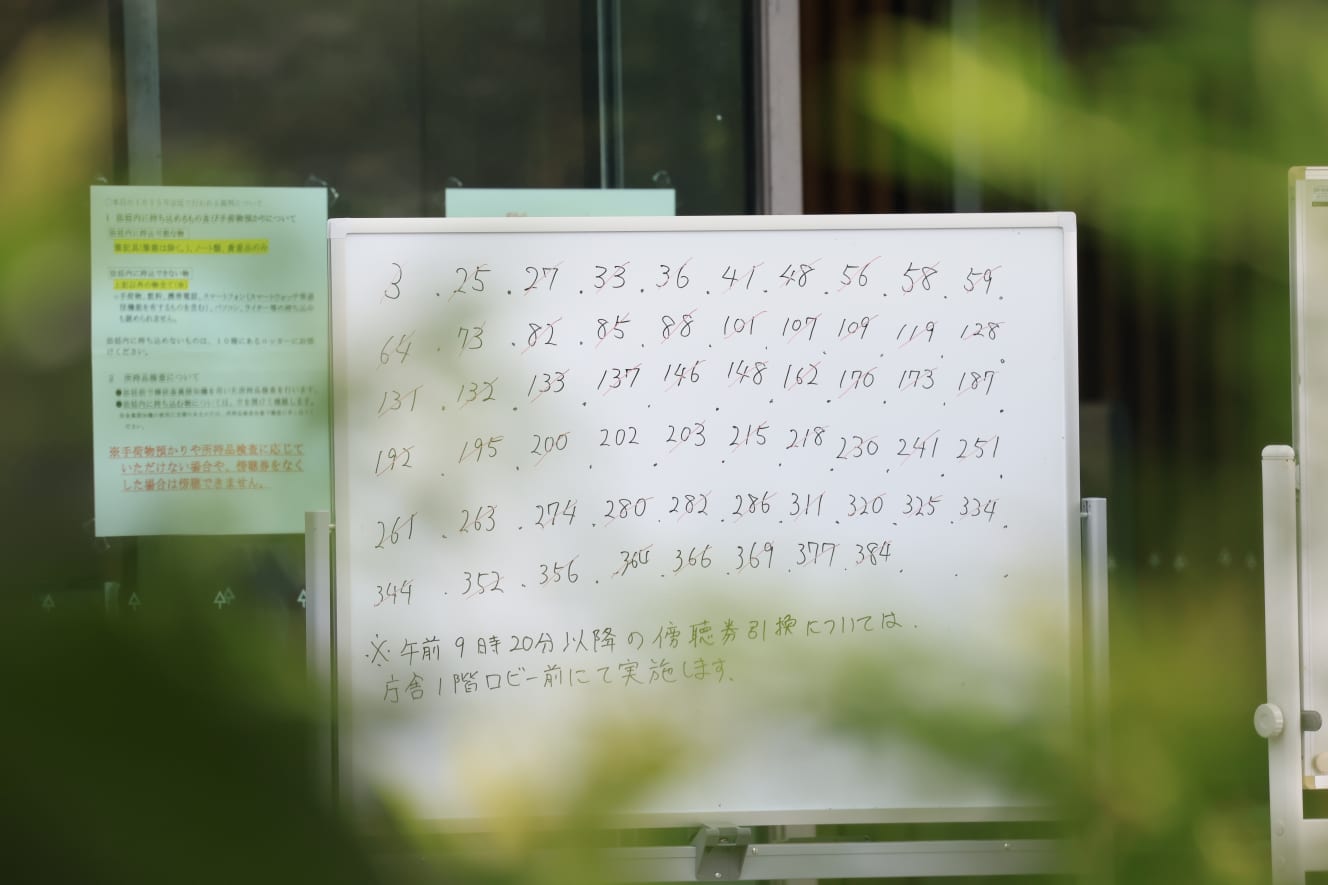 〇本日の1月15号法廷で行われる裁判について
1 法廷内に持ち込めるもの及び手荷物預かりについて
法廷内に持込可能な物
筆記具(筆箱は除く。)、ノート類、貴重品のみ
法廷内に持込できない物
上記以外の物全て(例)
も認められません。
法廷内に持ち込めないものは、10種にあるロッカーにお預
けください。
2 所持品検査について
ださい。
※手荷物預かりや所持品検査に応じて
いただけない場合や、傍聴券をなく
した場合は傍聴できません。
3 . 25 . 27 . 33 . 36 . 41 . 48 . 56 . 58 . 59 .
64 . 73 . 82 . 85 . 88 . 101 . 107 . 109 . 119 . 128 .
131 . 132 . 133 . 137 . 146 . 148 . 162 . 170 . 173 . 187 .
192 . 195 . 200 . 202 . 203 . 215 . 218 . 230 . 241 . 251 .
261 . 263 . 274 . 280 . 282 . 286 . 311 . 320 . 325 . 334 .
344 . 352 . 356 . 364 . 366 . 369 . 377 . 384 . . .
※午前9時20分以降の傍聴券引換については.
庁舎1階ロビー前にて実施します.